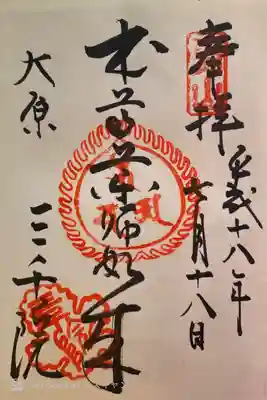 奉拝
平成十八年
月十八日
薬師如来
大原
三千院